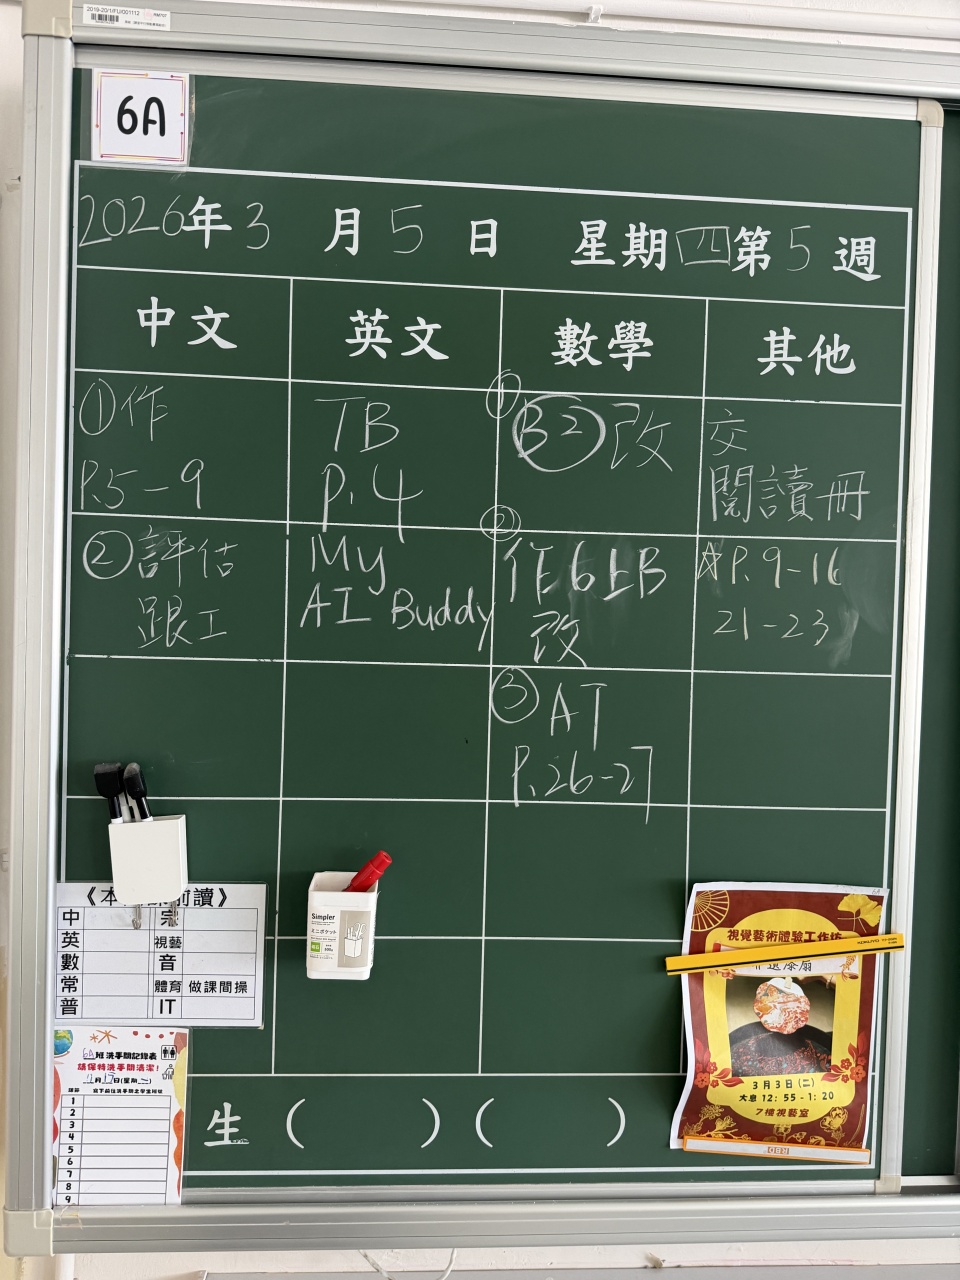 2019-20/1/FU/001112
6A
2026年3月5日 星期四第5週
中文 英文 數學 其他
①作
P.5-9
②評估
跟工
TB
P.4
My
AI Buddy
①
B② 改
②
作6上B
改
③ AT
P.26-27
交
閱讀冊
☆P.9-16
21-23
《本 前讀》
中 宗
英 視藝
數 音
常 體育 做課間操
普 IT
Simpler
ミニポケット
6A班洗手間記錄表
請保持洗手間清潔！
1
2
3
4
5
6
7
8
9
生 ( ) ( )
6A
視覺藝術體驗工作坊
KOKUYO
漆扇
3月3日(二)
大息 12:55-1:20
7樓視藝室